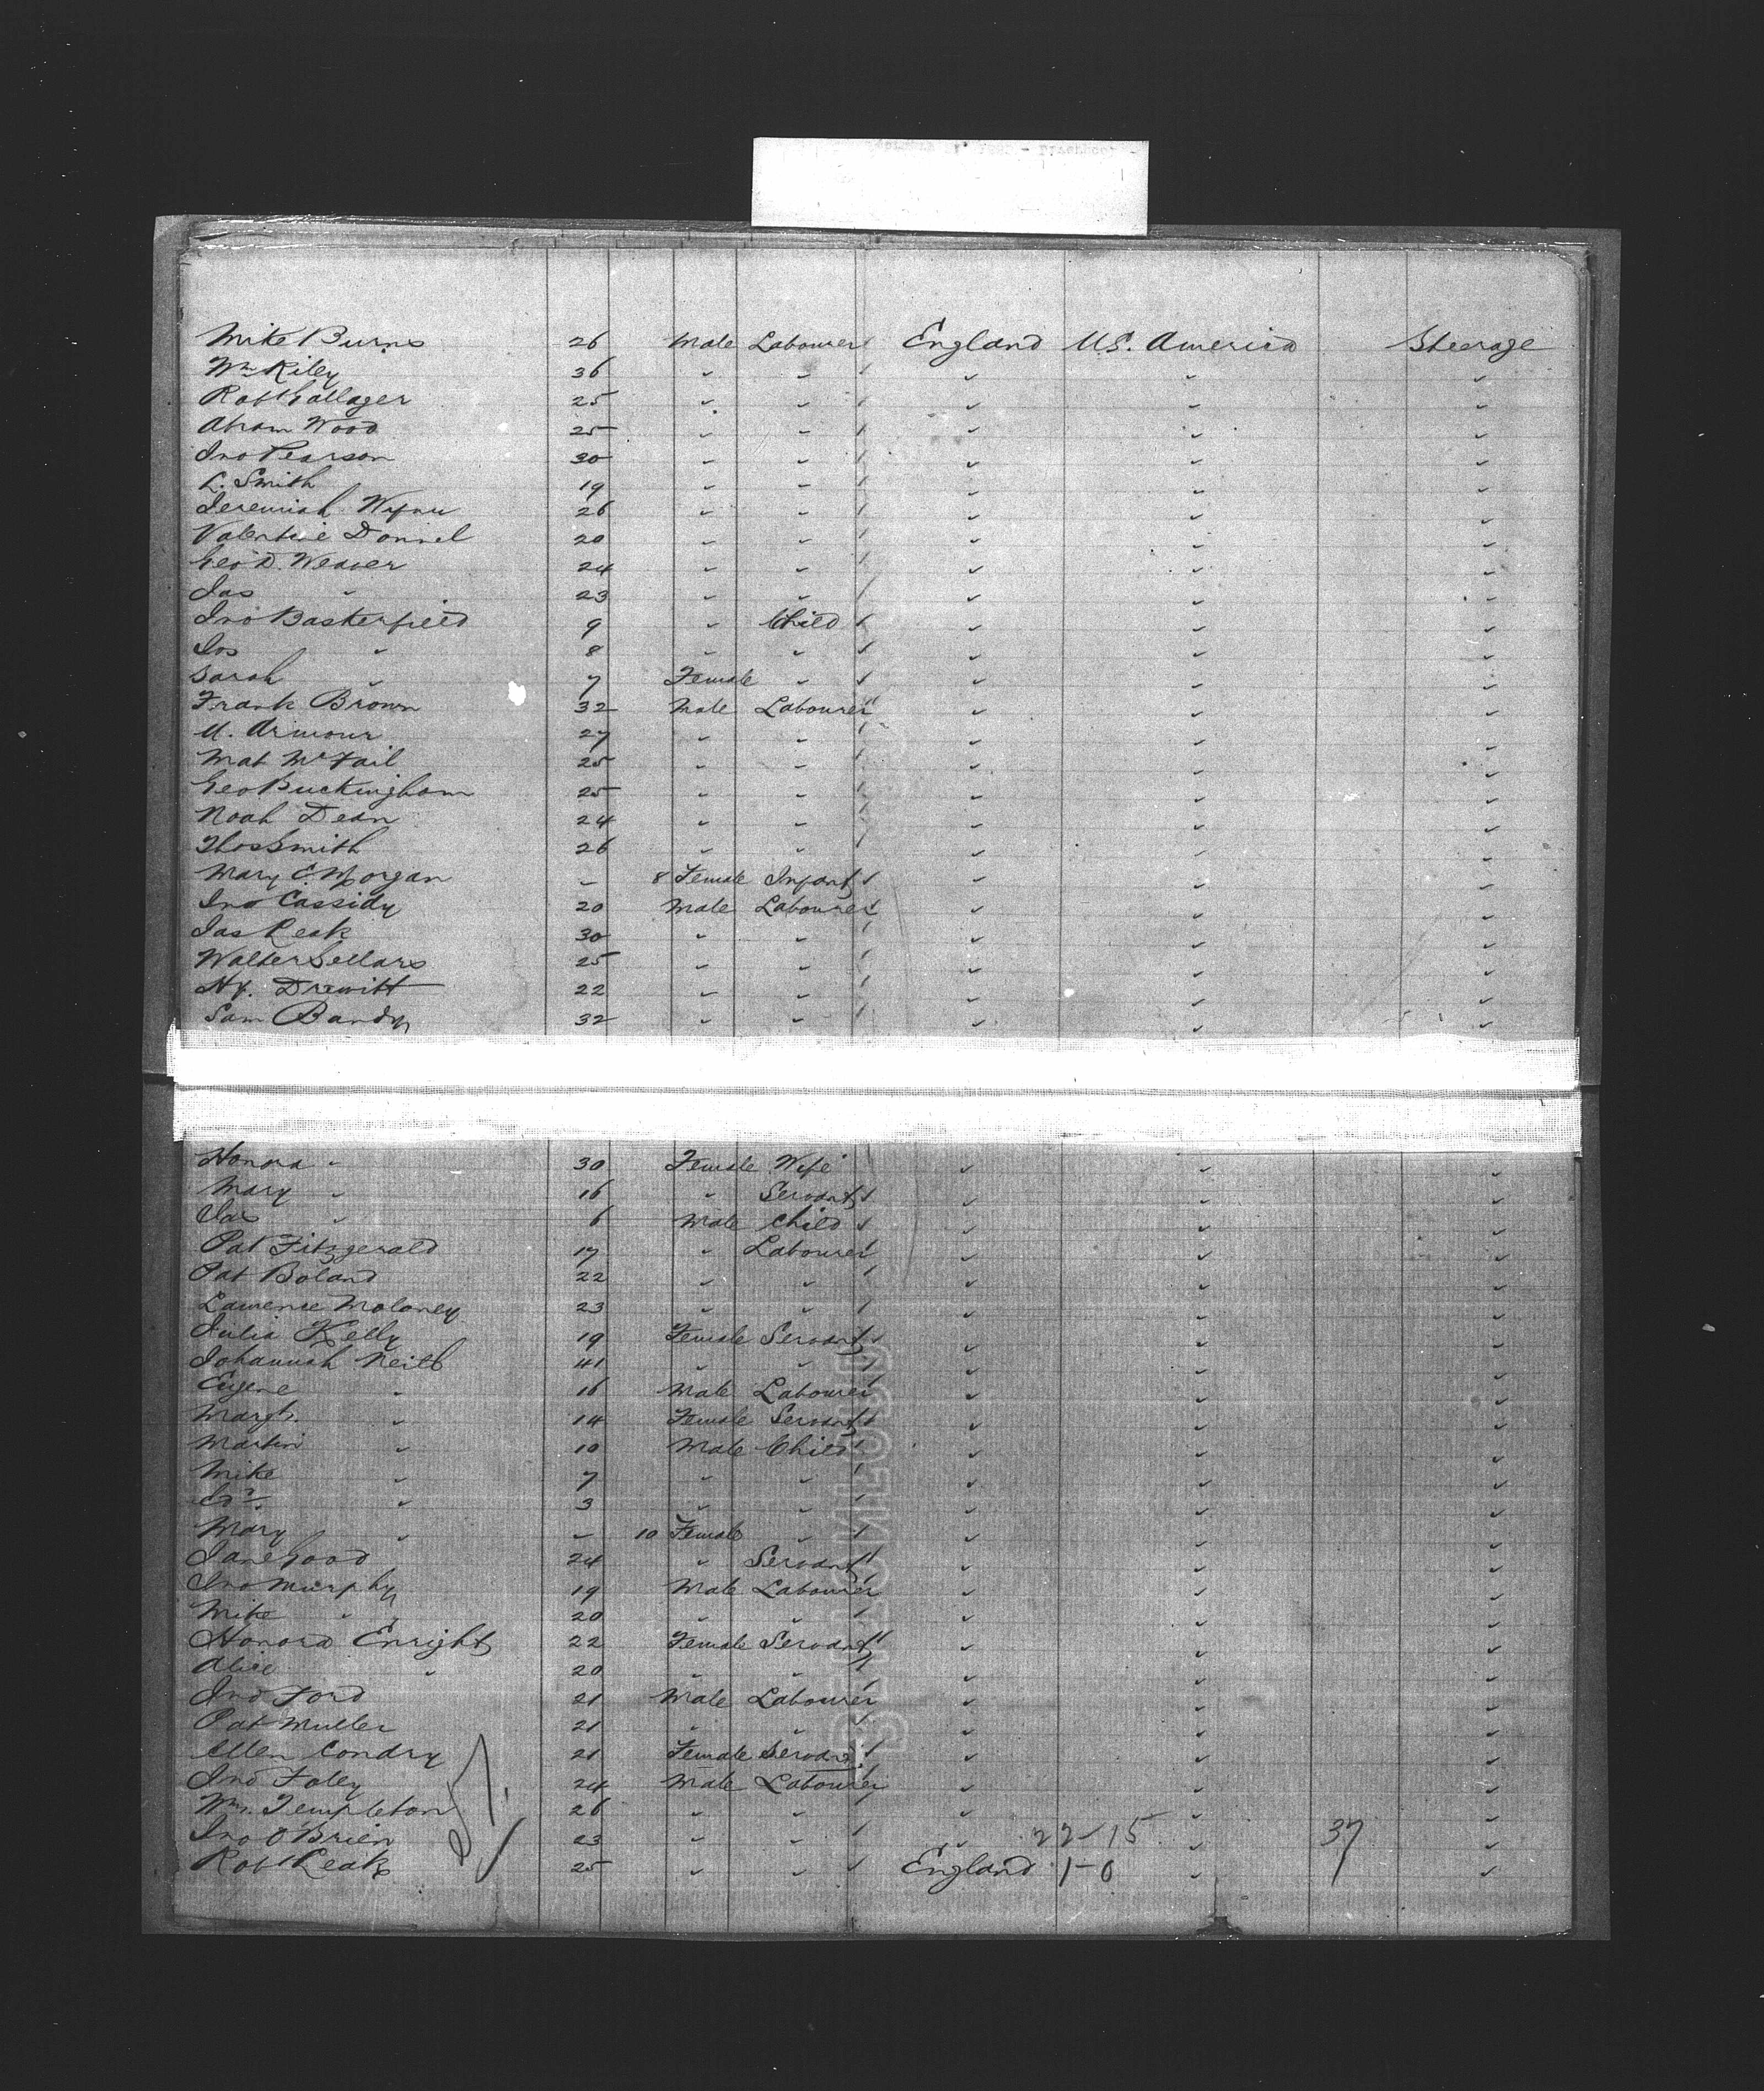 Mike Burns 26 Male Labourer England U.S. America Steerage
Wm Riley 36 " " " " "
Robt Gallager 25 " " " " "
Abram Wood 25 " " " " "
Jno Pearson 30 " " " " "
L. Smith 19 " " " " "
Jeremiah Wynn 26 " " " " "
Valentine Donnel 20 " " " " "
Geo D. Weaver 24 " " " " "
Jas " 23 " " " " "
Jno Basterfield 9 " Child " " "
Jos " 8 " " " " "
Sarah " 7 Female " " " "
Frank Brown 32 Male Labourer " " "
M. Armour 27 " " " " "
Mat McFail 25 " " " " "
Geo Buckingham 25 " " " " "
Noah Dean 24 " " " " "
Thos Smith 26 " " " " "
Mary E Morgan - 8 Female Infant " " "
Jno Cassidy 20 Male Labourer " " "
Jas Leak 30 " " " " "
Walter Sellars 25 " " " " "
Hy. Drewitt 22 " " " " "
Sam Bandy 32 " " " " "
Honora " 30 Female Wife " " "
Mary " 16 " Servant " " "
Jas " 6 Male Child " " "
Pat Fitzgerald 17 " Labourer " " "
Pat Boland 22 " " " " "
Lawrence Moloney 23 " " " " "
Julia Kelly 19 Female Servant " " "
Johannah Neill 41 " " " " "
Eugene " 16 Male Labourer " " "
Margt. " 14 Female Servant " " "
Martin " 10 Male Child " " "
Mike " 7 " " " " "
" 3 " " " " "
Mary " - 10 Female " " " "
Jane Good 24 " Servant " " "
Jno Murphy 19 Male Labourer " " "
Mike " 20 " " " " "
Honora Enright 22 Female Servant " " "
Alice " 20 " " " " "
Jno Ford 21 Male Labourer " " "
Pat Muller 21 " " " " "
Ellen Condry 21 Female Servant " " "
Jno Foley 24 Male Labourer " " "
Wm. Templeton 26 " " " " "
Jno O'Brien 23 " " " 22-15 " 37 "
Robt Leak 25 " " England 1-0 " "